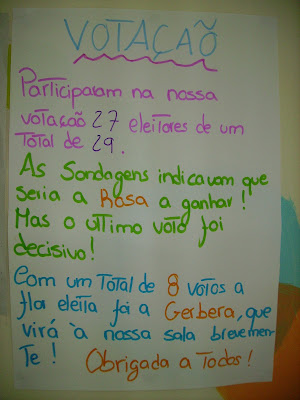 VOTAÇAÕ
Participaram na nossa
votação 27 eleitores de um
Total de 29.
As Sondagens indicavam que
seria a Rosa a ganhar!
Mas o último voto foi
decisivo!
Com um Total de 8 votos a
flor eleita foi a Gerbera, que
virá à nossa sala brevemen
Te! Obrigada a Todos!